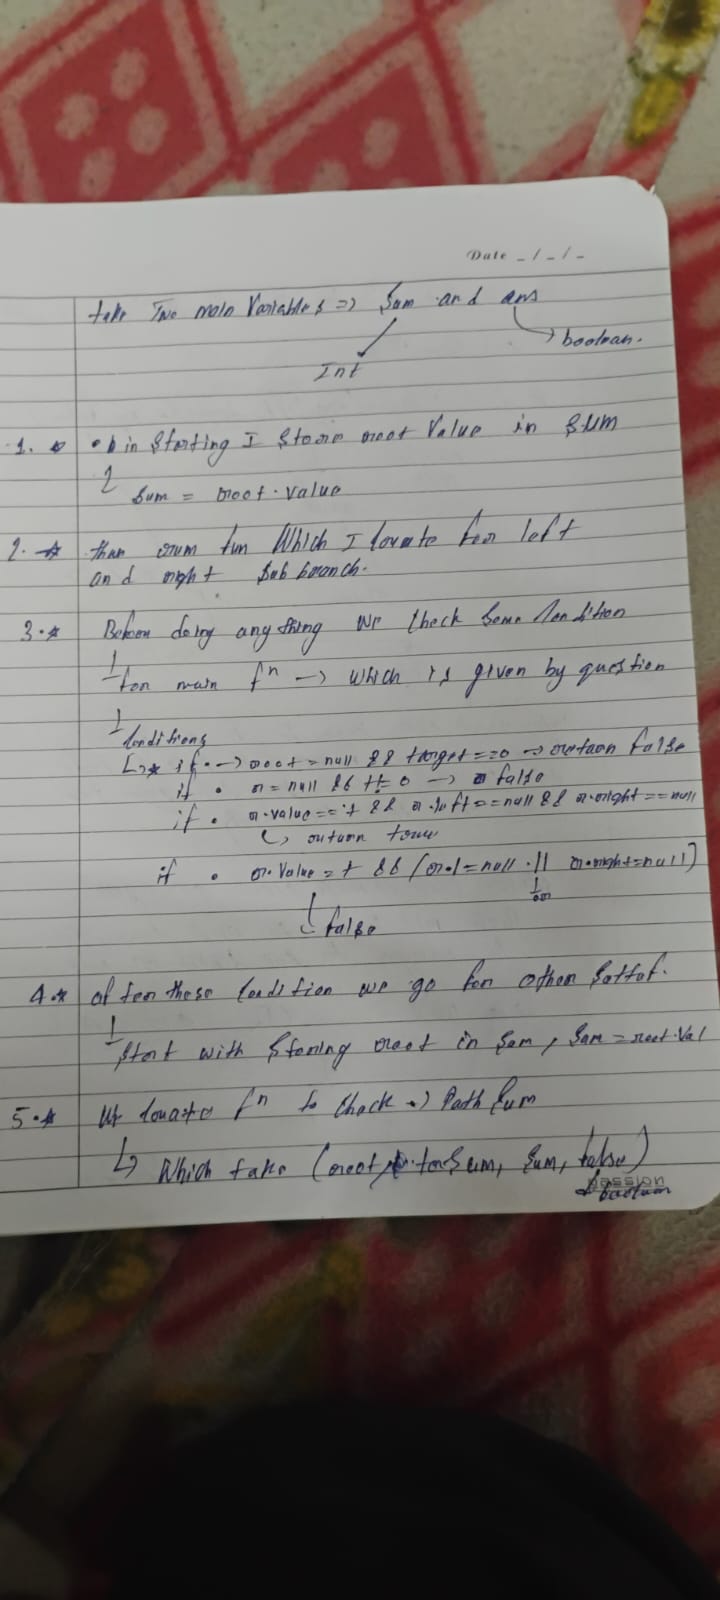 Date _ / _ / _
take Two main Variables => Sum and ans
boolean.
Int
1. in Starting I Store root Value in SUM
Sum = root.value
2. then run fun Which I create for left
and right Sub branch.
3. Before doing anything we Check Some Condition
for main fn -> which is given by question
Conditions
if -> root = null && target == 0 -> return false
if r = null && t != 0 -> false
if r.value == t && r.left == null && r.right == null
return true
if r.value = t && (r.l = null || r.right = null)
or
false
4. after these Condition we go for other
Start with Storing root in Sum, Sum = root.Val
5. We create fn to Check -> Path Sum
Which take (root, tarSum, Sum, false)